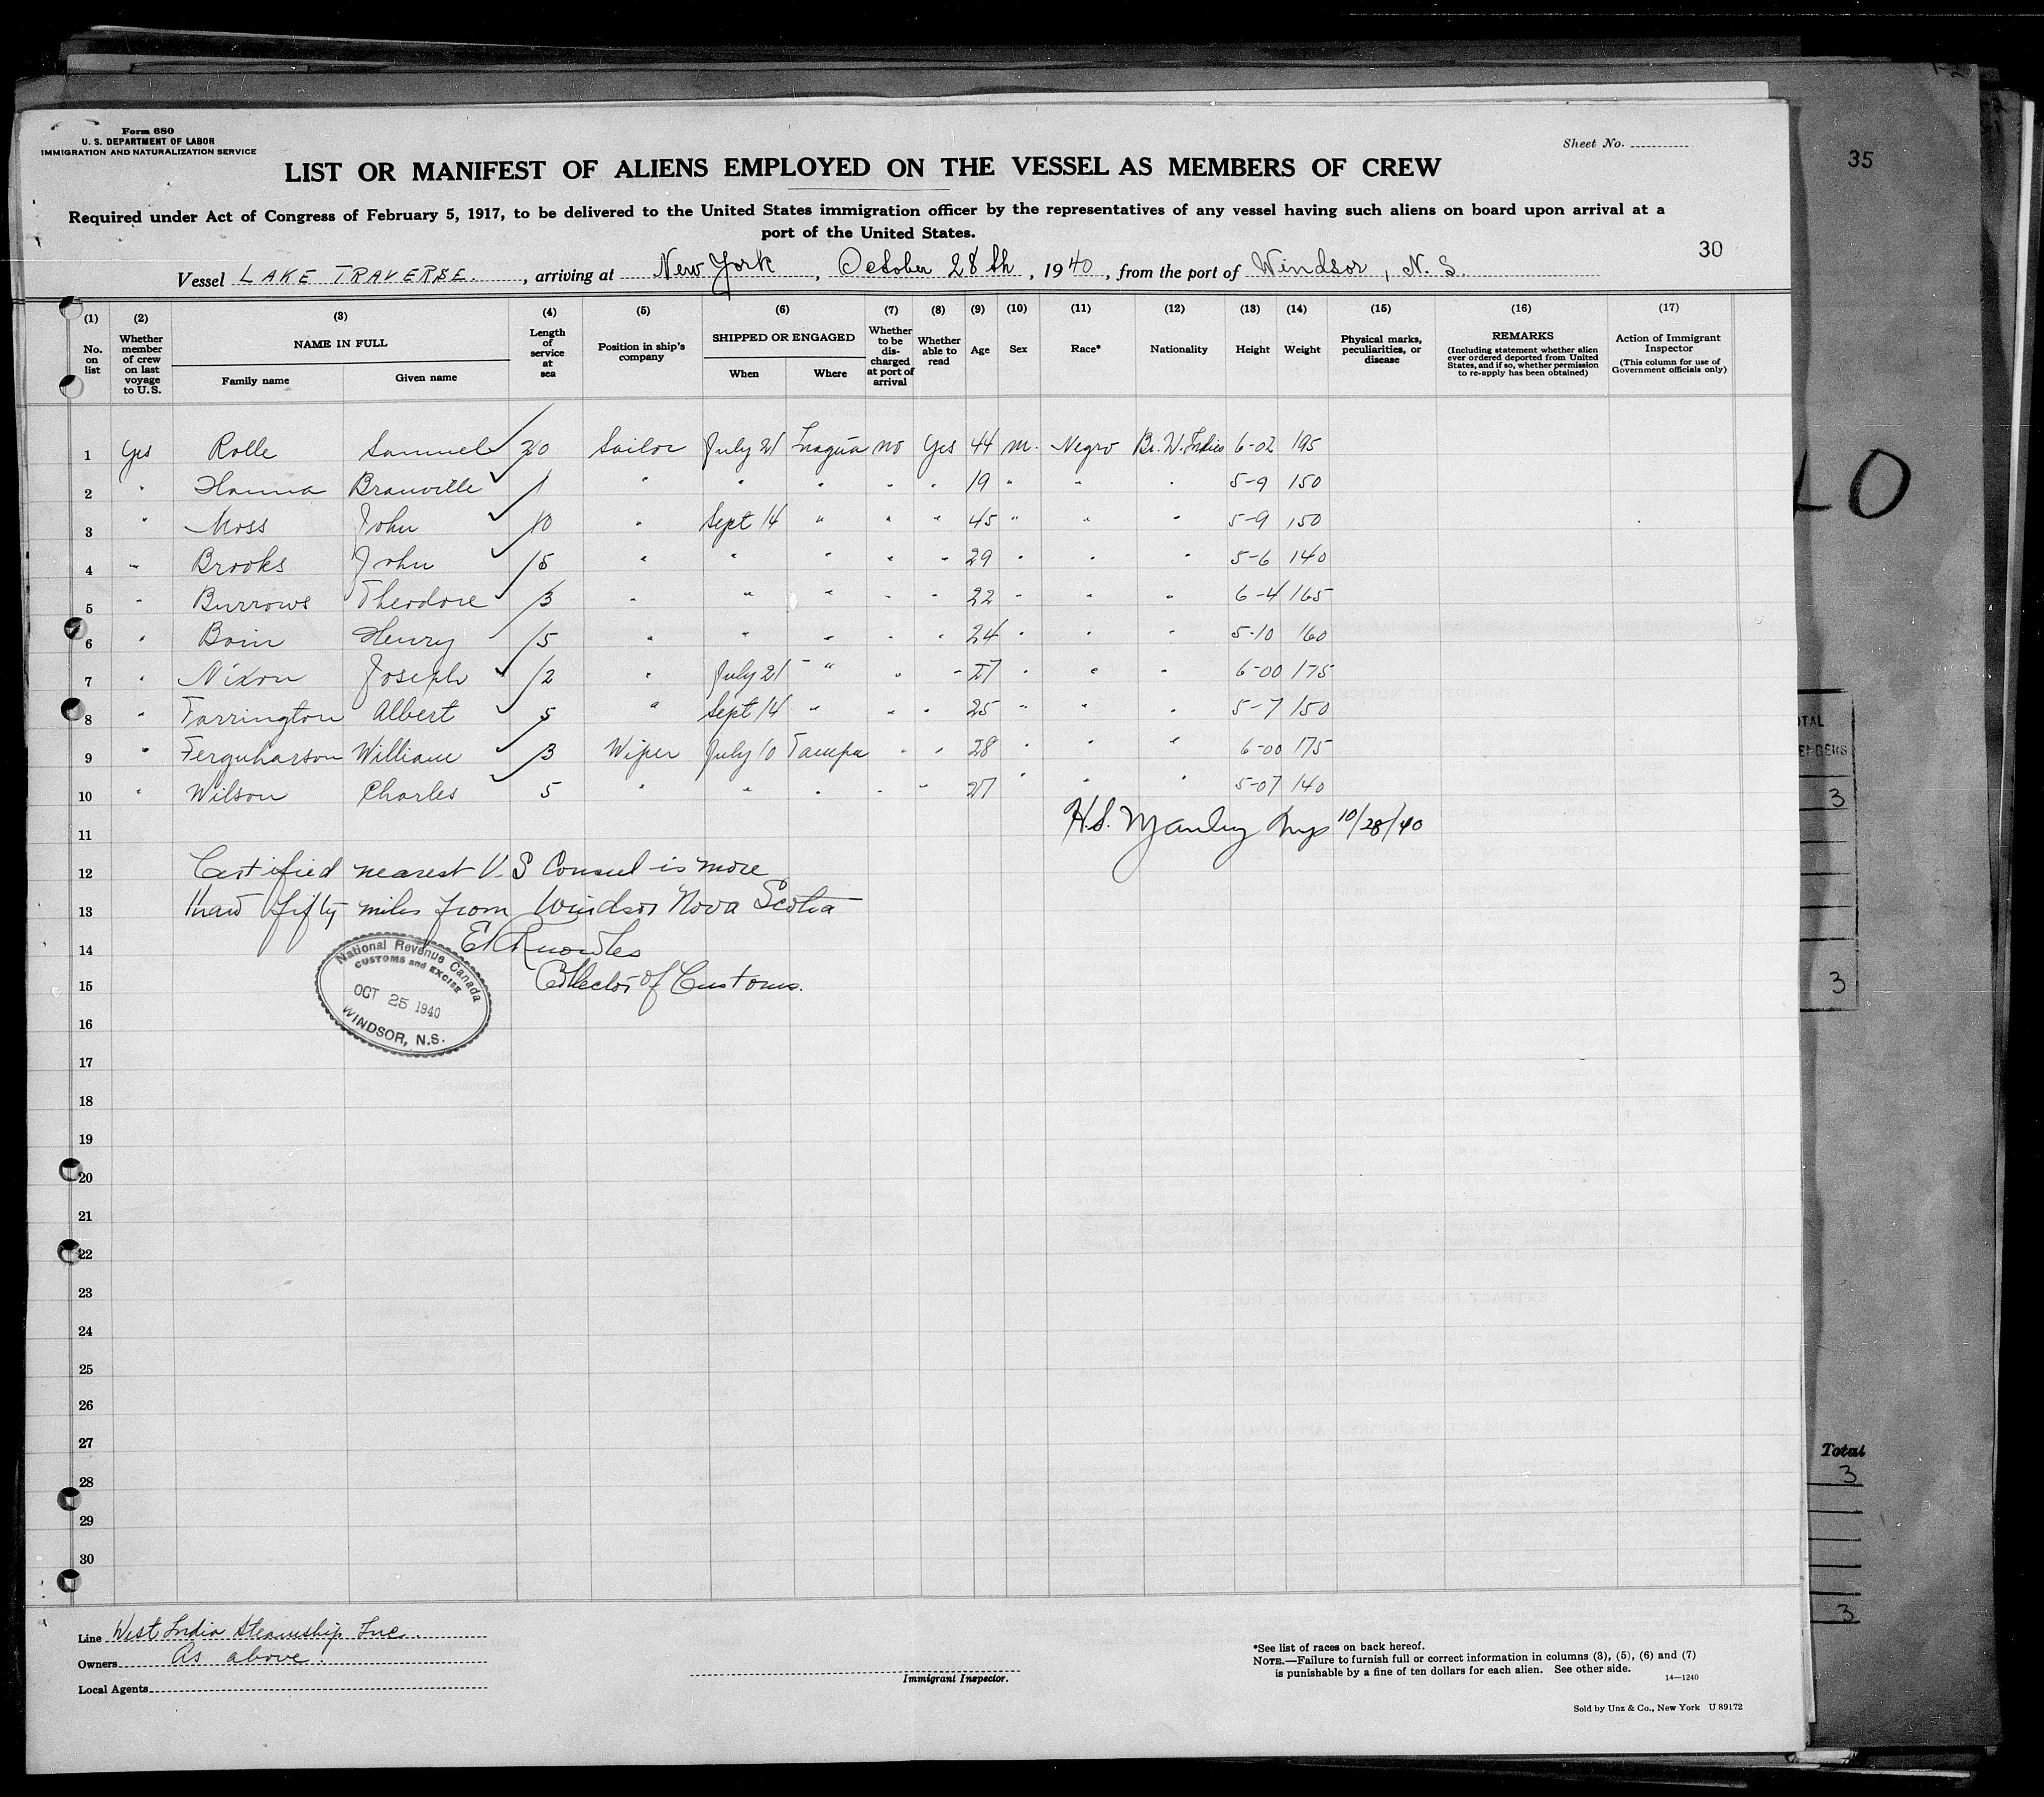 Form 680
U. S. DEPARTMENT OF LABOR
IMMIGRATION AND NATURALIZATION SERVICE
Sheet No.
35
LIST OR MANIFEST OF ALIENS EMPLOYED ON THE VESSEL AS MEMBERS OF CREW
Required under Act of Congress of February 5, 1917, to be delivered to the United States immigration officer by the representatives of any vessel having such aliens on board upon arrival at a
port of the United States.
30
Vessel LAKE TRAVERSE, arriving at New York, October 28th, 1940, from the port of Windsor, N. S.
(1) (2) (3) (4) (5) (6) (7) (8) (9) (10) (11) (12) (13) (14) (15) (16) (17)
No. on list
Whether member of crew on last voyage to U.S.
NAME IN FULL
Family name Given name
Length of service at sea
Position in ship's company
SHIPPED OR ENGAGED
When Where
Whether to be discharged at port of arrival
Whether able to read
Age
Sex
Race*
Nationality
Height
Weight
Physical marks, peculiarities, or disease
REMARKS
(Including statement whether alien ever ordered deported from United States, and if so, whether permission to re-apply has been obtained)
Action of Immigrant Inspector
(This column for use of Government officials only)
1 Yes Rolle Samuel 20 Sailor July 21 Inagua no Yes 44 M. Negro Br. W. Indies 6-02 195
2 " Hanna Branville 1 " " " " " 19 " " " 5-9 150
3 " Moss John 10 " Sept 14 " " " 45 " " " 5-9 150
4 " Brooks John 5 " " " " " 29 " " " 5-6 140
5 " Burrows Theodore 3 " " " " " 22 " " " 6-4 165
6 " Bain Henry 5 " " " " " 24 " " " 5-10 160
7 " Nixon Joseph 2 " July 21 " " " 27 " " " 6-00 175
8 " Farrington Albert 5 " Sept 14 " " " 25 " " " 5-7 150
9 " Ferguharson William 3 Wiper July 10 Tampa " " 28 " " " 6-00 175
10 " Wilson Charles 5 " " " " " 27 " " " 5-07 140
11 H.S. Manley Insp 10/28/40
12 Certified nearest U. S Consul is more
13 than fifty miles from Windsor Nova Scotia
14 E Knowles
15 Collector of Customs.
National Revenue Canada
CUSTOMS and EXCISE
OCT 25 1940
WINDSOR, N.S.
16
17
18
19
20
21
22
23
24
25
26
27
28
29
30
Line West India Steamship Inc.
Owners As above.
Local Agents
Immigrant Inspector.
*See list of races on back hereof.
NOTE.—Failure to furnish full or correct information in columns (3), (5), (6) and (7)
is punishable by a fine of ten dollars for each alien. See other side.
14—1240
Sold by Unz & Co., New York U 89172
3
3
Total
3
3